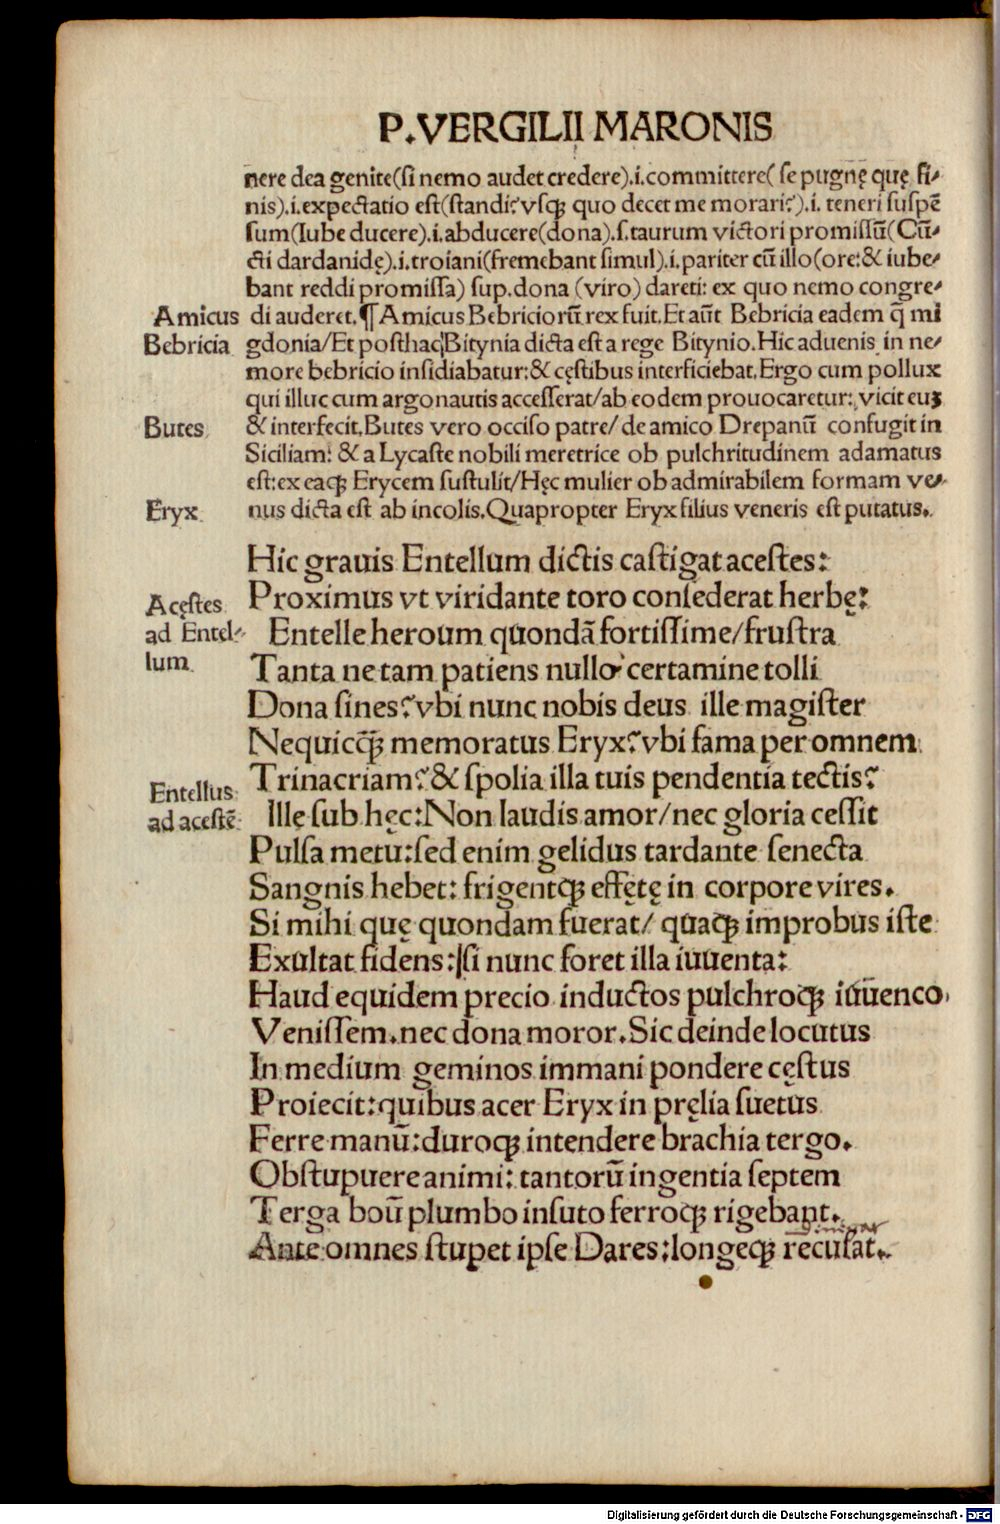 P.VERGILII MARONIS
nere dea genite(ſi nemo audet credere).i.committere( ſe pugnę quę fi⸗
nis).i.expectatio eſt(ſtandi?vſqꝫ quo decet me morari?).i. teneri ſuſpē
ſum(Iube ducere).i.abducere(dona).ſ.taurum victori promiſſū(Cū⸗
cti dardanidę).i.troiani(fremebant ſimul).i.pariter cū illo(ore:& iube⸗
bant reddi promiſſa) ſup.dona (viro) dareti: ex quo nemo congre⸗
Amicus di auderet.¶ Amicus Bebriciorū rex fuit.Et aūt Bebricia eadem q̄ mi
Bebricia gdonia/Et poſthac Bitynia dicta eſt a rege Bitynio.Hic aduenis in ne⸗
more bebricio inſidiabatur:& cęſtibus interficiebat.Ergo cum pollux
qui illuc cum argonautis acceſſerat/ab eodem prouocaretur: vicit euꝫ
Butes & interfecit.Butes vero occiſo patre/ de amico Drepanū confugit in
Siciliam: & a Lycaſte nobili meretrice ob pulchritudinem adamatus
eſt:ex eaqꝫ Erycem ſuſtulit/Hęc mulier ob admirabilem formam ve⸗
Eryx nus dicta eſt ab incolis.Quapropter Eryx filius veneris eſt putatus.
Hic grauis Entellum dictis caſtigat aceſtes:
Acęſtes Proximus vt viridante toro conſederat herbę:
ad Entel⸗ Entelle heroum quondā fortiſſime/fruſtra
lum Tanta ne tam patiens nullo certamine tolli
Dona ſines?vbi nunc nobis deus ille magiſter
Nequicq̄ꝫ memoratus Eryx?vbi fama per omnem
Entellus Trinacriam?& ſpolia illa tuis pendentia tectis?
ad aceſtē Ille ſub hęc:Non laudis amor/nec gloria ceſſit
Pulſa metu:ſed enim gelidus tardante ſenecta
Sangnis hebet: frigentqꝫ effętę in corpore vires.
Si mihi quę quondam fuerat/ quaqꝫ improbus iſte
Exultat fidens:ſi nunc foret illa iuuenta:
Haud equidem precio inductos pulchroqꝫ iuuenco
Veniſſem.nec dona moror.Sic deinde locutus
In medium geminos immani pondere cęſtus
Proiecit:quibus acer Eryx in pręlia ſuetus
Ferre manū:duroqꝫ intendere brachia tergo.
Obſtupuere animi: tantorū ingentia ſeptem
Terga boū plumbo inſuto ferroqꝫ rigebant.
Ante omnes ſtupet ipſe Dares:longeqꝫ recuſat.
Digitalisierung gefördert durch die Deutsche Forschungsgemeinschaft - DFG